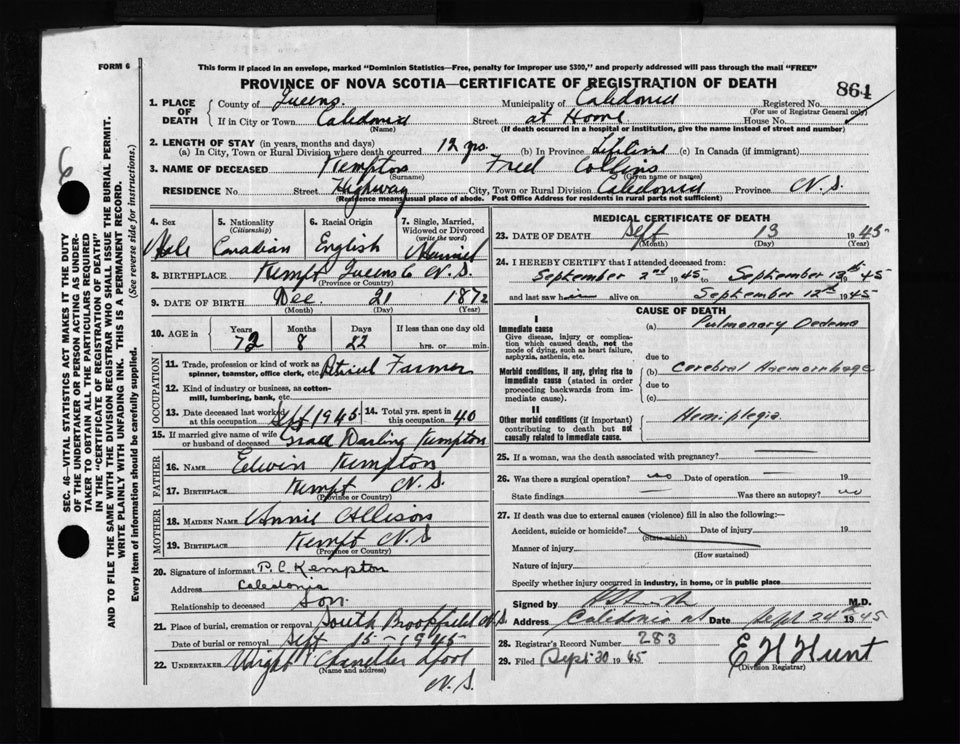 FORM 6
This form if placed in an envelope, marked "Dominion Statistics—Free, penalty for improper use $300," and properly addressed will pass through the mail "FREE"
PROVINCE OF NOVA SCOTIA—CERTIFICATE OF REGISTRATION OF DEATH
864
1. PLACE OF DEATH County of Queens. Municipality of Caledonia Registered No.
(For use of Registrar General only)
If in City or Town Caledonia Street at Home House No.
(Name) (If death occurred in a hospital or institution, give the name instead of street and number)
2. LENGTH OF STAY (in years, months and days)
(a) In City, Town or Rural Division where death occurred 12 yrs. (b) In Province Lifetime (c) In Canada (if immigrant)
3. NAME OF DECEASED Kempton Fred Collins
(Surname) (Given name or names)
RESIDENCE No. Street Highway City, Town or Rural Division Caledonia Province N.S.
(Residence means usual place of abode. Post Office Address for residents in rural parts not sufficient)
4. Sex 5. Nationality (Citizenship) 6. Racial Origin 7. Single, Married, Widowed or Divorced (write the word)
Male Canadian English Married
8. BIRTHPLACE Kempt Queens Co N.S.
(Province or Country)
9. DATE OF BIRTH Dec. 21 1872
(Month) (Day) (Year)
10. AGE in Years Months Days If less than one day old
72 8 22 hrs. or min.
OCCUPATION
11. Trade, profession or kind of work as spinner, teamster, office clerk, etc. Retired Farmer
12. Kind of industry or business, as cotton-mill, lumbering, bank, etc.
13. Date deceased last worked at this occupation Sept 1945 14. Total yrs. spent in this occupation 40
15. If married give name of wife or husband of deceased Grace Darling Kempton
FATHER
16. NAME Edwin Kempton
17. BIRTHPLACE Kempt N.S.
(Province or Country)
MOTHER
18. MAIDEN NAME Annie Allison
19. BIRTHPLACE Kempt N.S
(Province or Country)
20. Signature of informant P. C. Kempton
Address Caledonia
Relationship to deceased Son.
21. Place of burial, cremation or removal South Brookfield N.S.
Date of burial or removal Sept 15 - 1945
22. UNDERTAKER Chandler Lpool
(Name and address)
N.S.
MEDICAL CERTIFICATE OF DEATH
23. DATE OF DEATH Sept 13 1945
(Month) (Day) (Year)
24. I HEREBY CERTIFY that I attended deceased from:
September 2nd 1945 to September 12th 1945
and last saw him alive on September 12th 1945
CAUSE OF DEATH
I
Immediate cause
Give disease, injury or complication which caused death, not the mode of dying, such as heart failure, asphyxia, asthenia, etc.
(a) Pulmonary Oedema
due to
Morbid conditions, if any, giving rise to immediate cause (stated in order proceeding backwards from immediate).
(b) Cerebral Haemorrhage
due to
(c)
II
Other morbid conditions (if important) contributing to death but not causally related to immediate cause.
Hemiplegia
25. If a woman, was the death associated with pregnancy? —
26. Was there a surgical operation? no Date of operation — 19
State findings — Was there an autopsy? no
27. If death was due to external causes (violence) fill in also the following:—
Accident, suicide or homicide? Date of injury 19
(State which)
Manner of injury
(How sustained)
Nature of injury
Specify whether injury occurred in industry, in home, or in public place
Signed by M.D.
Address Caledonia Date Sept 24th 1945
28. Registrar's Record Number 283
29. Filed Sept 30 1945 E H Hunt
(Division Registrar)
SEC. 46—VITAL STATISTICS ACT MAKES IT THE DUTY
OF THE UNDERTAKER OR PERSON ACTING AS UNDER-
TAKER TO OBTAIN ALL THE PARTICULARS REQUIRED
IN THE "CERTIFICATE OF REGISTRATION OF DEATH"
AND TO FILE THE SAME WITH THE DIVISION REGISTRAR WHO SHALL ISSUE THE BURIAL PERMIT.
WRITE PLAINLY WITH UNFADING INK. THIS IS A PERMANENT RECORD.
Every item of information should be carefully supplied. (See reverse side for instructions.)